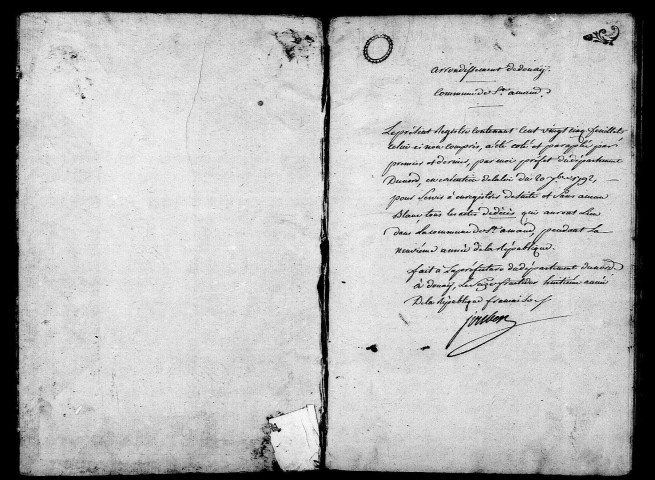 arrondissement de douay.
Commune de St. amand.
Le présent Registre Contenant Cent vingt cinq feuillets
celui-ci non compris, a été coté et paraphé par
premier et dernier, par moi préfet du département
Dunord, en exécution de la loi du 20 7bre 1792,
pour servir à enregistrer de suite et sans aucun
Blanc, tous les actes de décès qui auront lieu
dans la commune de St. amand, pendant la
neuvième année de la République.
fait à la préfecture du département du nord
à douay, le fructidor huitième année
De la République française